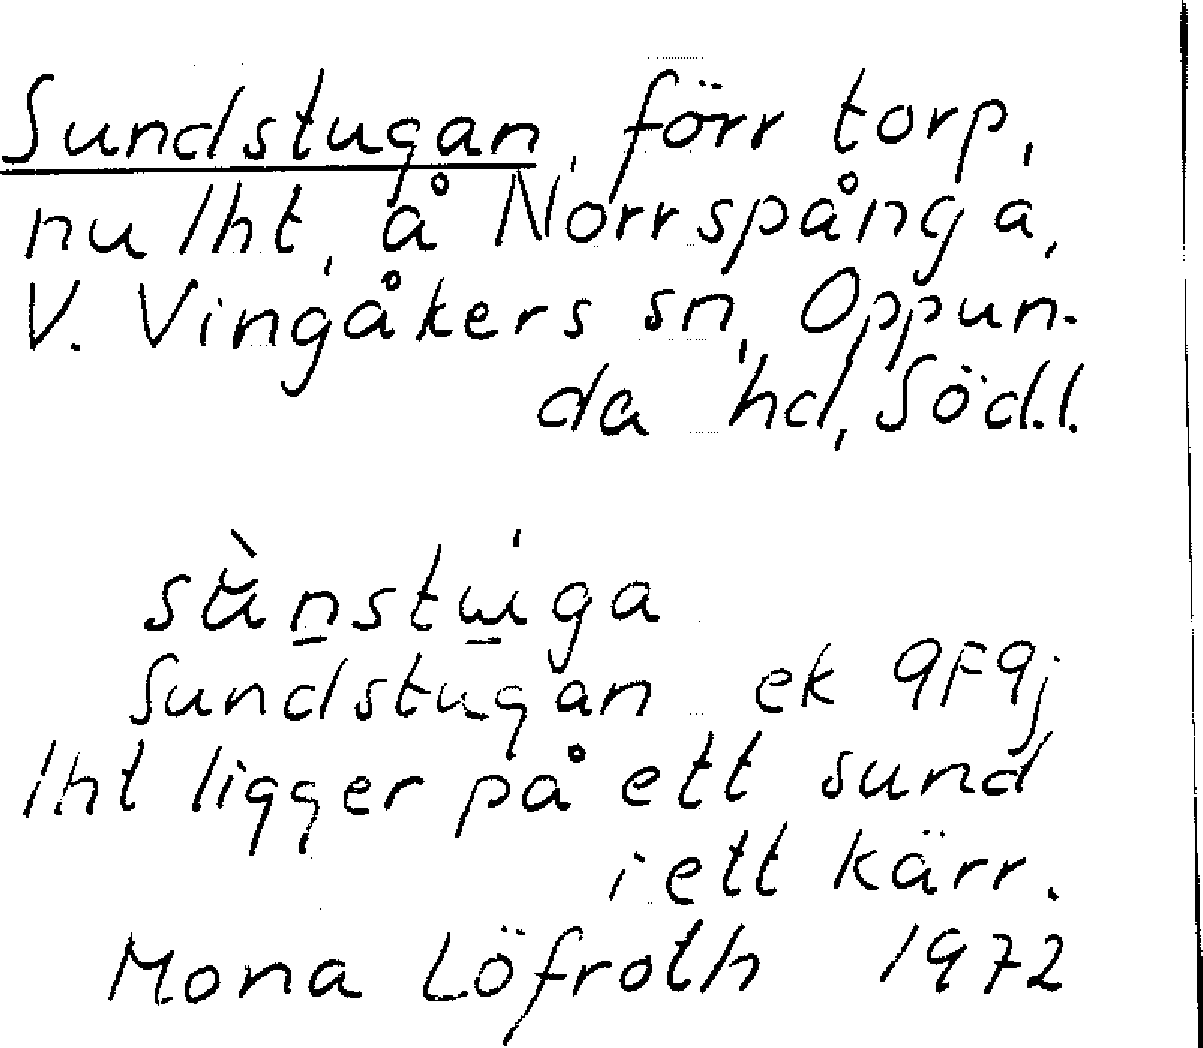 Sundstugan, förr torp,
nu lht, å Norrspånga,
V. Vingåkers sn, Oppun-
da hd, Söd.l.
Sundstugan ek 9F9j
lht ligger på ett sund
i ett kärr.
Mona Löfroth 1972